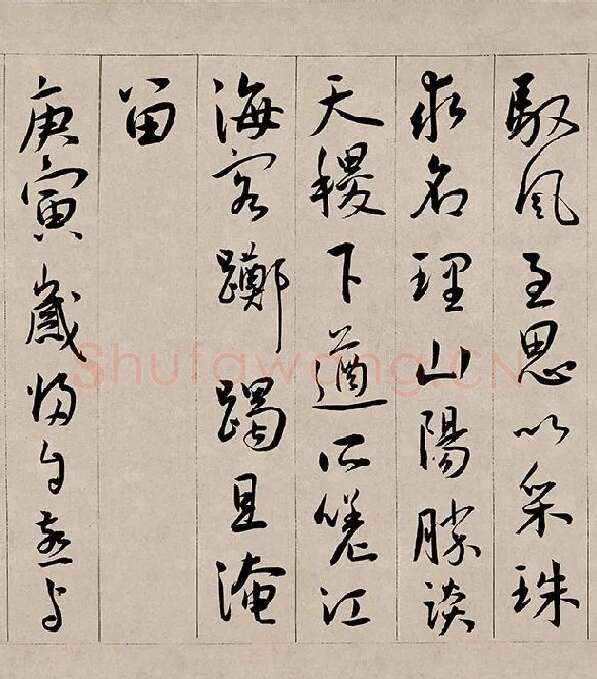 馭風至思以采珠
求名理山陽勝談
天稷下遒所嗟江
海客躑躅且淹
留
庚寅歲歸自燕与
Shufawang.CN